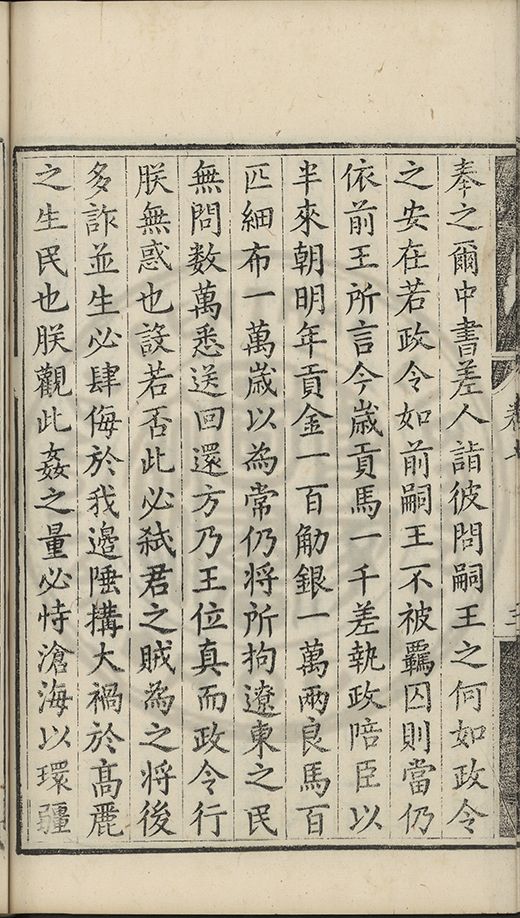 奉之爾中書差人詣彼問嗣王之何如政令
之安在若政令如前嗣王不被羈囚則當仍
依前王所言今歲貢馬一千差執政陪臣以
半來朝明年貢金一百觔銀一萬兩良馬百
匹細布一萬歲以為常仍將所拘遼東之民
無問數萬悉送回還方乃王位真而政令行
朕無惑也設若否此必弑君之賊為之將後
多詐並生必肆侮於我邊陲搆大禍於高麗
之生民也朕觀此姦之量必恃滄海以環疆